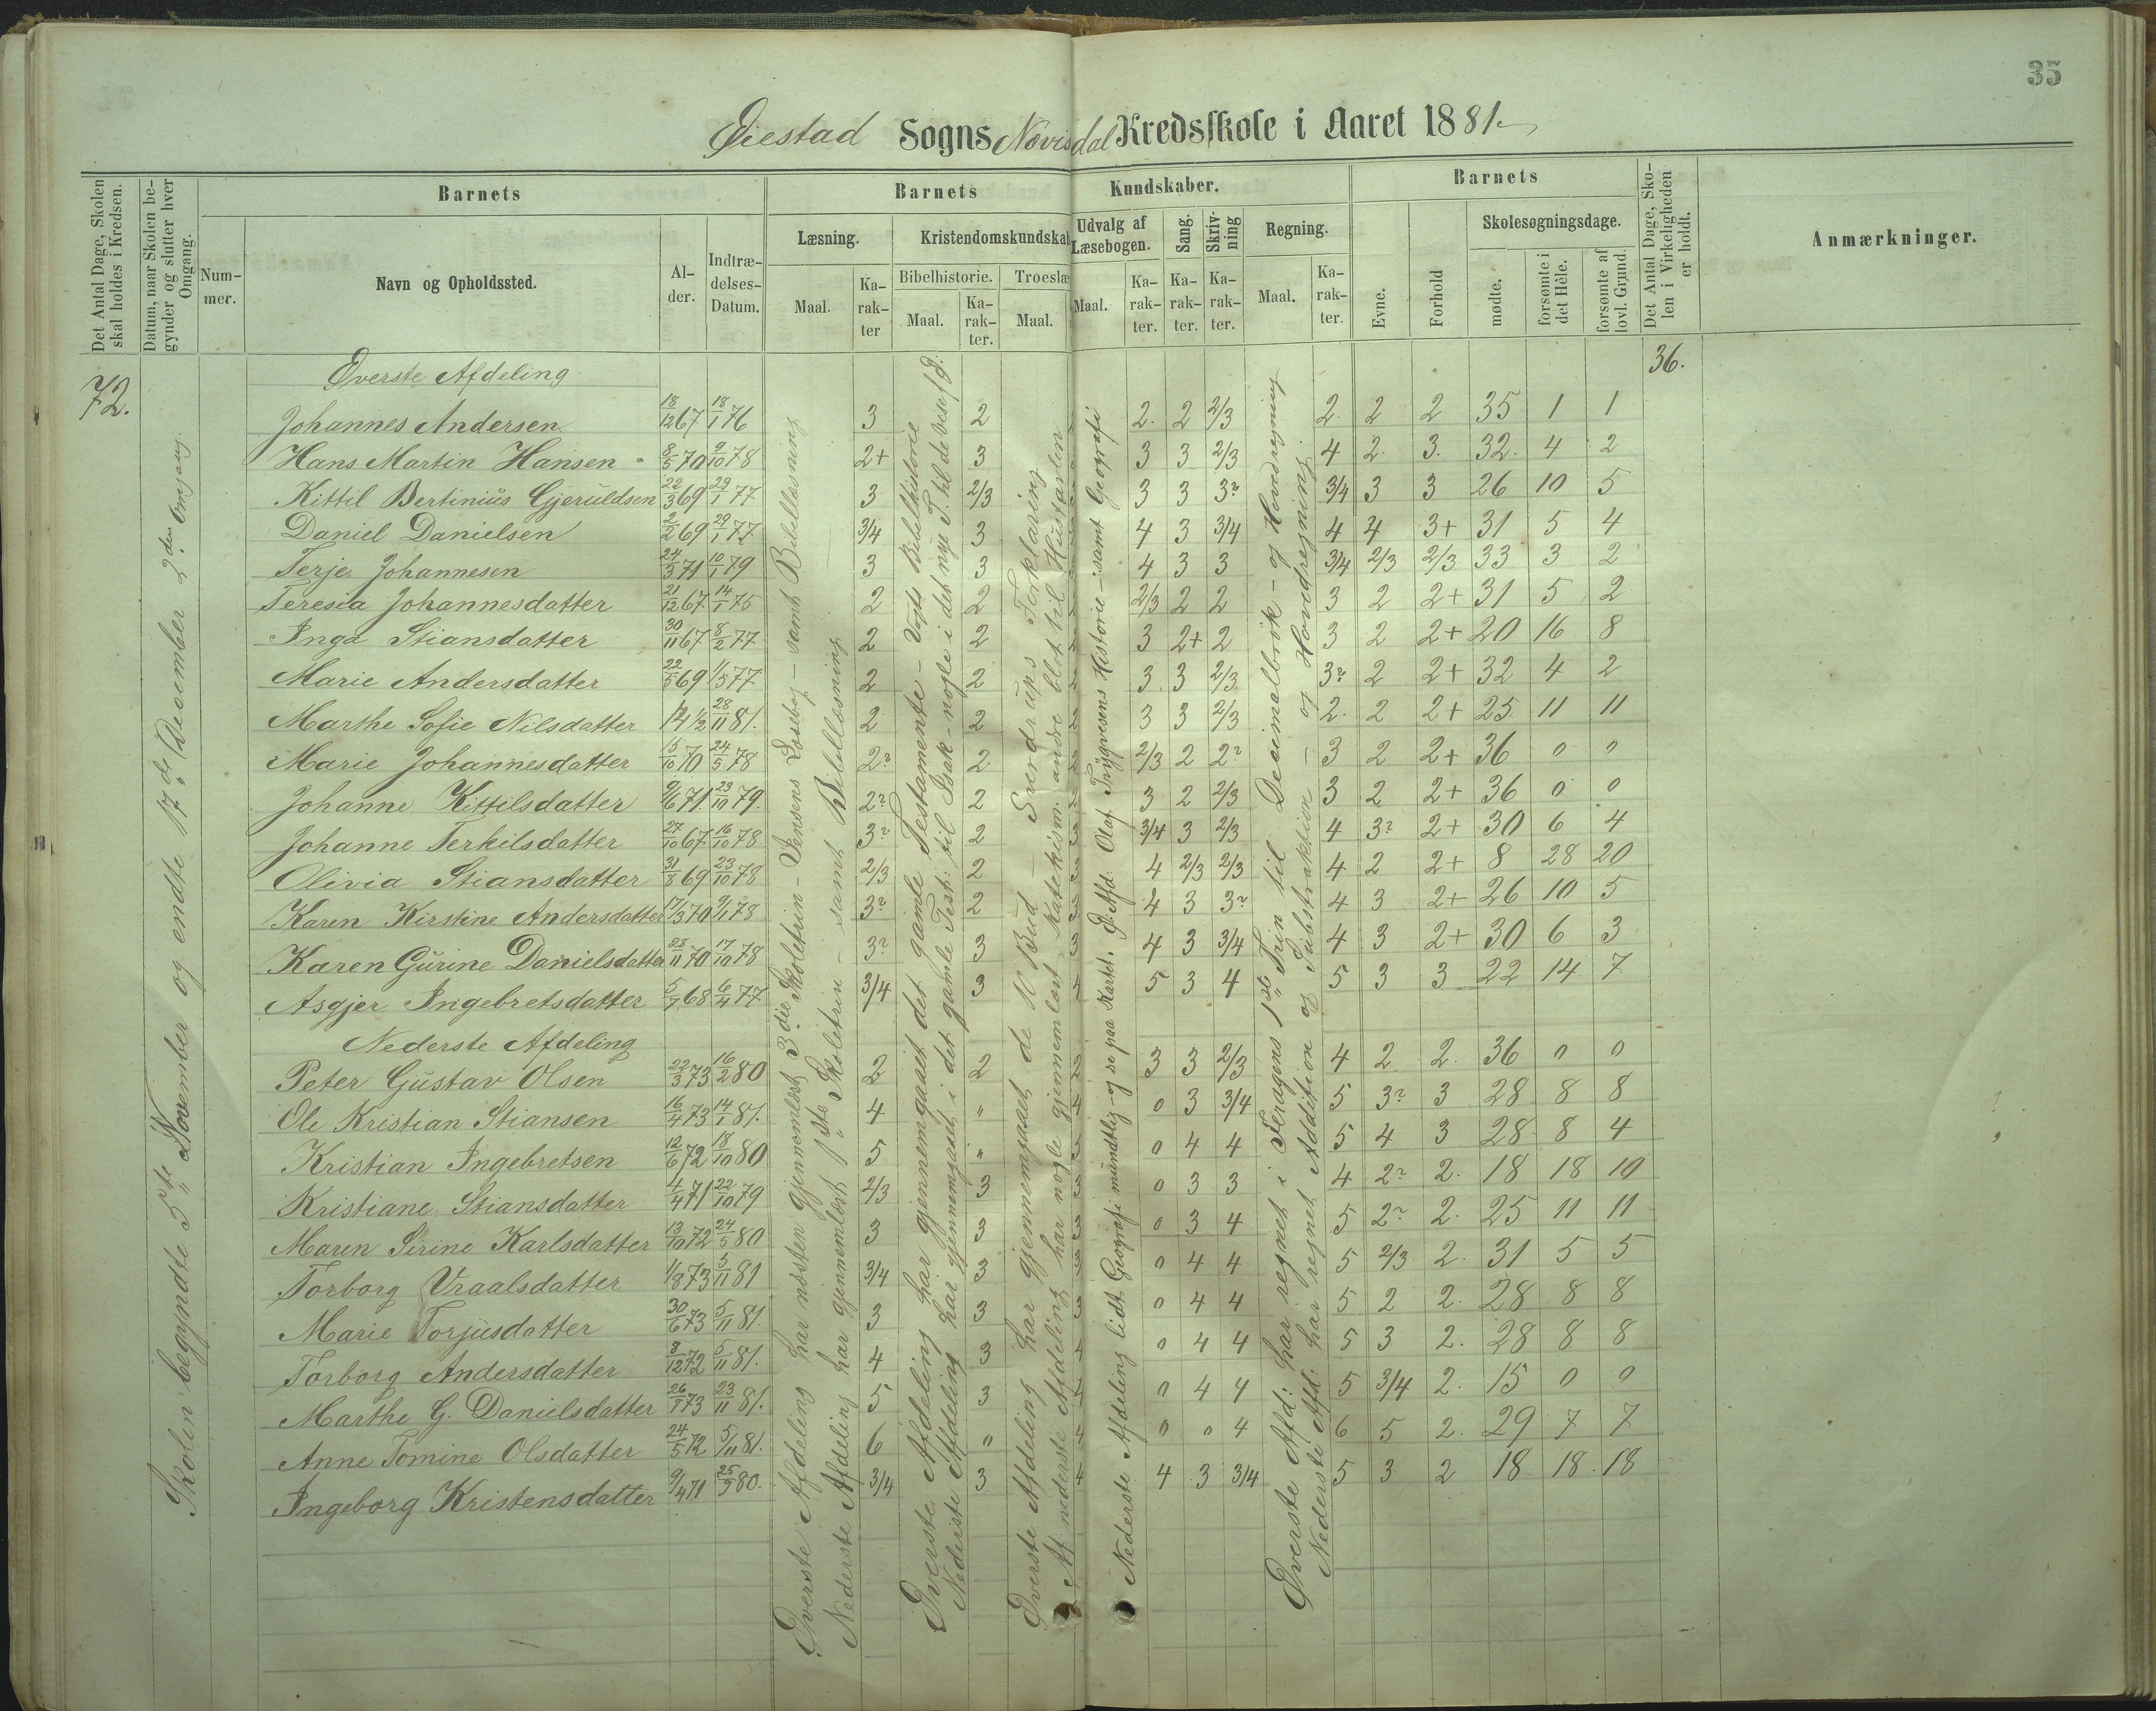 35
Øiestad Sogns Nævisdal Kredsskole i Aaret 1881.
Det Antal Dage, Skolen skal holdes i Kredsen.
Datum, naar Skolen begynder og slutter hver Omgang.
Barnets
Nummer.
Navn og Opholdssted.
Alder.
Indtrædelses-Datum.
Barnets Kundskaber.
Læsning.
Maal. Karakter
Kristendomskundskab
Bibelhistorie.
Maal. Karakter.
Troeslæ
Maal.
Udvalg af Læsebogen.
Maal. Karakter.
Sang.
Karakter.
Skrivning
Karakter.
Regning.
Maal. Karakter.
Barnets
Evne.
Forhold
Skolesøgningsdage.
mødte.
forsømte i det Hele.
forsømte af lovl. Grund.
Det Antal Dage, Skolen i Virkeligheden er holdt.
Anmærkninger.
72.
36.
Skolen begyndte 5te November og endte 17de December 2den Omgang.
Øverste Afdeling
Johannes Andersen 18/12 67 18/1 76 3 2 2. 2 2/3 2. 2 2 35 1 1
Hans Martin Hansen 8/5 70 9/10 78 2+ 3 3 3 2/3 4 2. 3. 32. 4 2
Kittil Bertinius Gjeruldsen 22/3 69 29/1 77 3 2/3 3 3 3? 3/4 3 3 26 10 5
Daniel Danielsen 2/2 69 29/1 77 3/4 3 4 3 3/4 4 4 3+ 31 5 4
Terje Johannesen 24/3 71 10/1 79 3 3 4 3 3 3/4 2/3 2/3 33 3 2
Teresia Johannesdatter 21/12 67 14/1 75 2 2 2/3 2 2 3 2 2+ 31 5 2
Inga Stiansdatter 30/11 67 8/2 77 2 2 3 2+ 2 3 2 2+ 20 16 8
Marie Andersdatter 22/5 69 1/5 77 2 2 3 3 2/3 3? 2 2+ 32 4 2
Marthe Sofie Nilsdatter 12 1/2 28/11 81. 2 2 3 3 2/3 2. 2 2+ 25 11 11
Marie Johannesdatter 5/10 70 24/5 78 2? 2 2/3 2 2? 3 2 2+ 36 0 0
Johanne Kittilsdatter 9/6 71 23/10 79. 2? 2 3 2 2/3 3 2 2+ 36 0 0
Johanne Terkilsdatter 27/10 67 16/10 78 3? 2 3/4 3 2/3 4 3? 2+ 30 6 4
Olivia Stiansdatter 31/8 69 23/10 78 2/3 2 4 2/3 2/3 4 2 2+ 8 28 20
Karen Kirstine Andersdatter 17/3 70 9/1 78 3? 2 4 3 3? 4 3 2+ 26 10 5
Karen Gurine Danielsdatter 28/11 70 17/10 78 3? 3 4 3 3/4 4 3 2+ 30 6 3
Asgjer Ingebretsdatter 5/7 68 6/4 77 3/4 3 5 3 4 5 3 3 22 14 7
Nederste Afdeling
Peter Gustav Olsen 22/3 73 16/2 80 2 2 3 3 2/3 4 2 2. 36 0 0
Ole Kristian Stiansen 16/4 73 14/1 81. 4 " 0 3 3/4 5 3? 3 28 8 8
Kristian Ingebretsen 12/6 72 18/10 80 5 " 0 4 4 5 4 3 28 8 4
Kristiane Stiansdatter 4/4 71 22/10 79 2/3 3 0 3 3 4 2? 2. 18 18 10
Maren Sirine Karlsdatter 13/10 72 24/5 80 3 3 0 3 4 5 2? 2. 25 11 11
Torborg Vraalsdatter 1/8 73 5/11 81 3/4 3 0 4 4 5 2/3 2. 31 5 5
Marie Torjusdatter 30/6 73 5/11 81. 3 3 0 4 4 5 2 2. 28 8 8
Torborg Andersdatter 8/12 72 5/11 81. 4 3 0 4 4 5 3 2. 28 8 8
Marthe G. Danielsdatter 26/1 73 23/11 81. 5 3 0 4 4 5 3/4 2. 15 0 0
Anne Tomine Olsdatter 24/5 72 5/11 81. 6 " 0 0 4 6 5 2. 29 7 7
Ingeborg Kristensdatter 9/4 71 25/9 80. 3/4 3 4 3 3/4 5 3 2 18 18 18
Øverste Afdeling har næsten gjennemlæst 3die Skoletrin - Jensens Læsebog - samt Bibellæsning
Nederste Afdeling har gjennemlæst 1ste Skoletrin - samt Bibellæsning
Øverste Afdeling har gjennemgaaet det gamle Testamente - Vogts Bibelhistorie
Nederste Afdeling har gjennemgaaet i det gamle Test: til Isak - nogle i det nye T. til de vise f Ø:
Øverste Afdeling har gjennemgaaet de 10 Bud - Sverdrups Forklaring
Af nederste Afdeling har nogle gjennemlæst Katekism. andre blot til Hustavlen
Ø. Afd: Olaf Trygvesens Historie - samt Geografi
Nederste Afdeling lidt Geografi mundtlig og se paa Kartet.
Øverste Afd: har regnet i Feragens 1ste Trin til Decimalbrøk - og Hovedregning
Nederste Afd: har regnet Addition og Subtraktion - og Hovedregning.